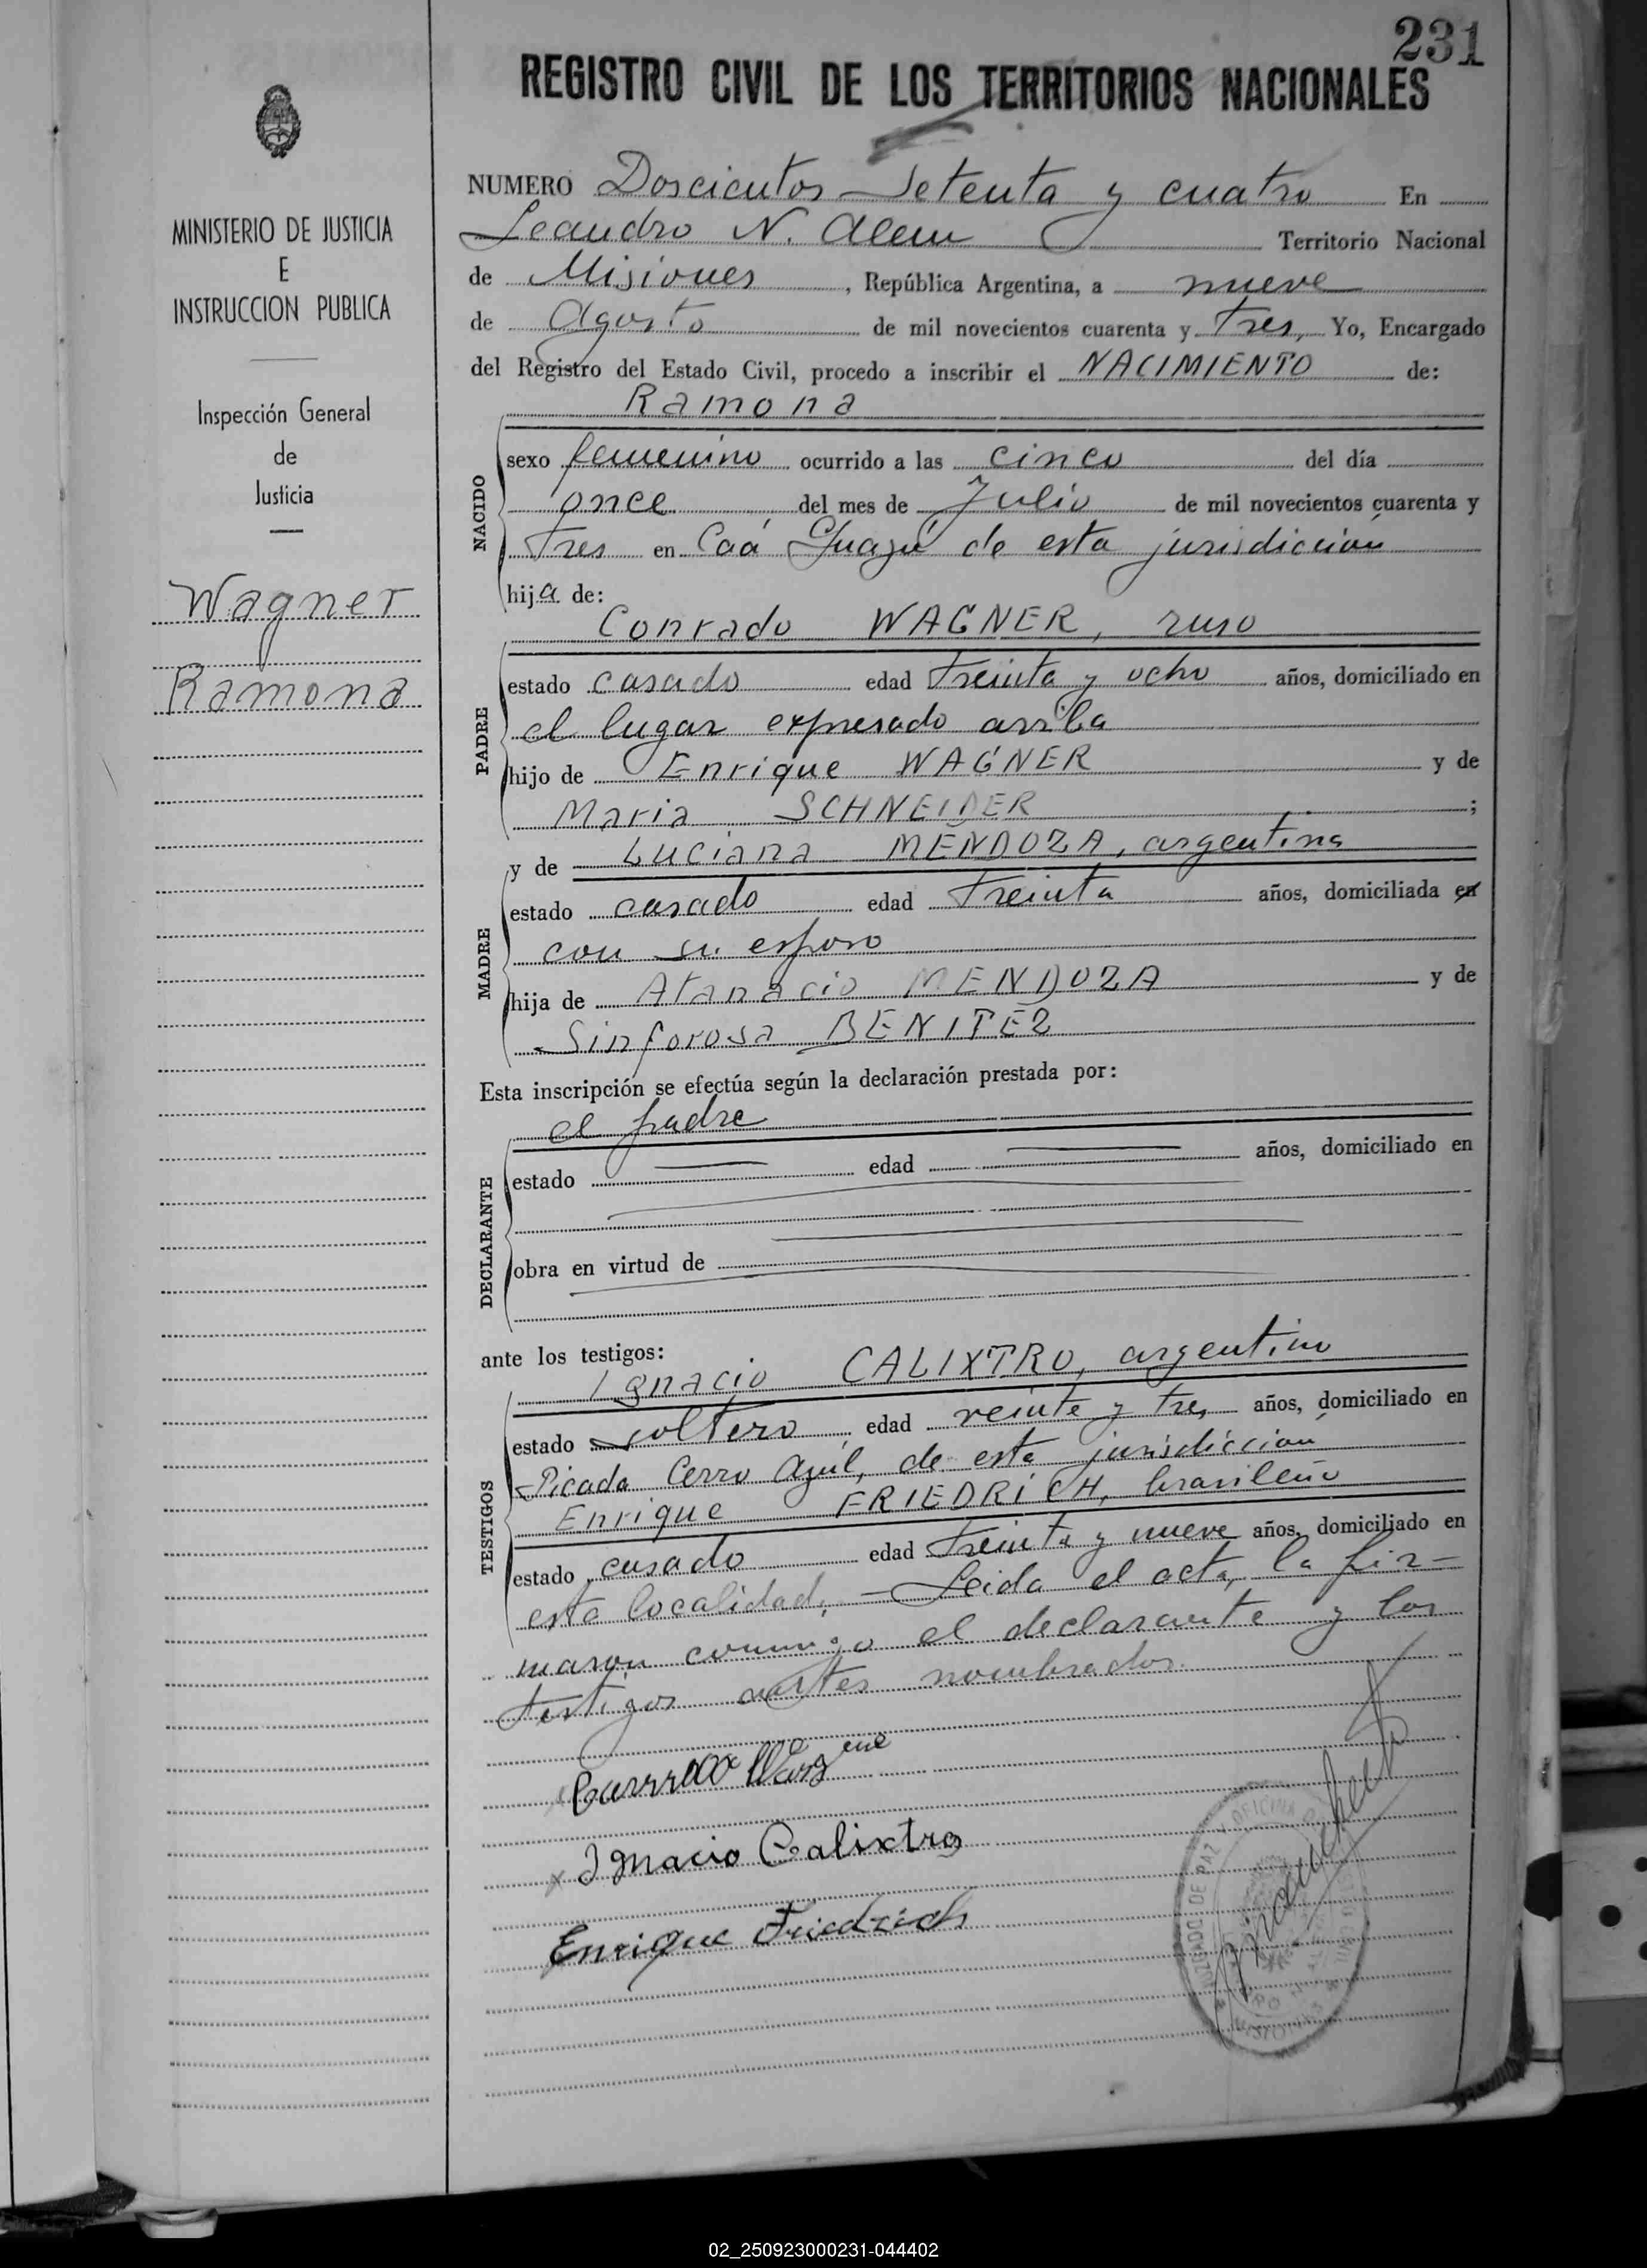 231
REGISTRO CIVIL DE LOS TERRITORIOS NACIONALES
MINISTERIO DE JUSTICIA
E
INSTRUCCION PUBLICA
Inspección General
de
Justicia
Wagner
Ramona
NUMERO Doscientos Setenta y cuatro En
Leandro N. Alem Territorio Nacional
de Misiones, República Argentina, a nueve
de Agosto de mil novecientos cuarenta y tres, Yo, Encargado
del Registro del Estado Civil, procedo a inscribir el NACIMIENTO de:
Ramona
NACIDO
sexo femenino ocurrido a las cinco del día
once del mes de Julio de mil novecientos cuarenta y
tres en Caá Guazú de esta jurisdicción
hija de:
Conrado WAGNER, ruso
PADRE
estado casado edad treinta y ocho años, domiciliado en
el lugar expresado arriba
hijo de Enrique WAGNER y de
Maria SCHNEIDER ;
y de Luciana MENDOZA, argentina
MADRE
estado casado edad treinta años, domiciliada en
con su esposo
hija de Atanacio MENDOZA y de
Sinforosa BENITEZ
Esta inscripción se efectúa según la declaración prestada por:
el padre
DECLARANTE
estado edad años, domiciliado en
obra en virtud de
ante los testigos:
Ignacio CALIXTRO, argentino
TESTIGOS
estado soltero edad veinte y tres años, domiciliado en
Picada Cerro Azul, de esta jurisdicción
Enrique FRIEDRICH, brasileño
estado casado edad treinta y nueve años, domiciliado en
esta localidad. Leida el acta, la fir-
maron conmigo el declarante y los
testigos antes nombrados.
Ignacio Calixtro
Enrique Friedrich
JUZGADO DE PAZ Y OFICINA
MISIONES
02_250923000231-044402